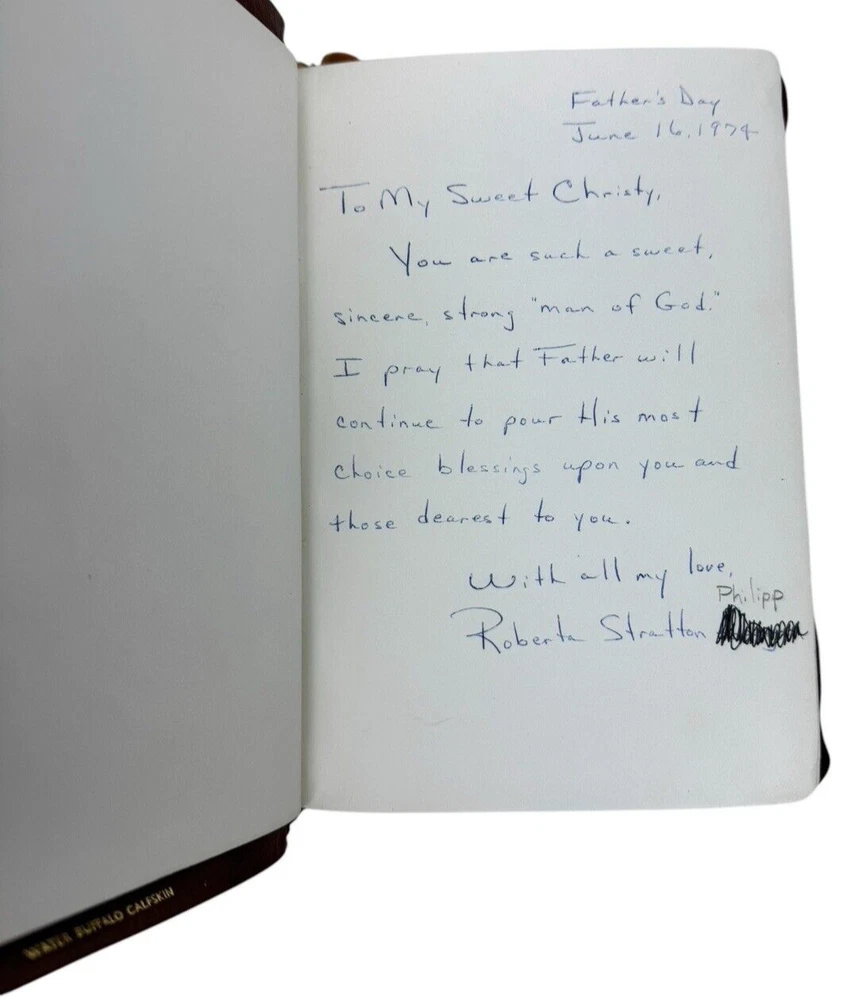 Father's Day
June 16, 1974
To My Sweet Christy,
You are such a sweet,
sincere, strong "man of God."
I pray that Father will
continue to pour His most
choice blessings upon you and
those dearest to you.
With all my love,
Philipp
Roberta Stratton
WATER BUFFALO CALFSKIN